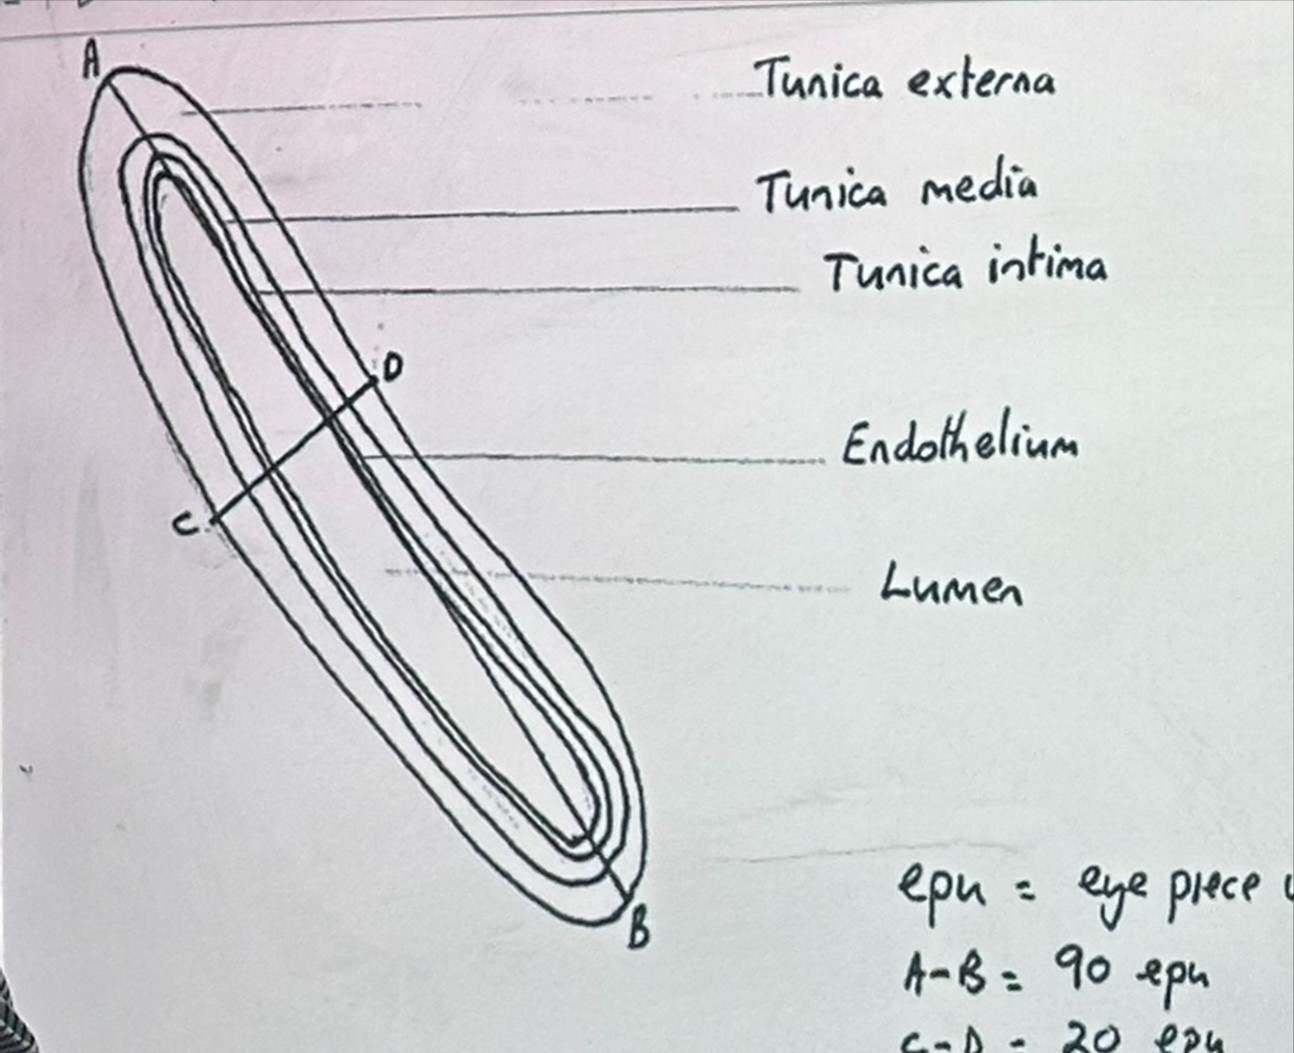 A
Tunica externa
Tunica media
Tunica intima
D
Endothelium
C
Lumen
epu = eye piece
B
A-B = 90 epu
C-D = 20 epu